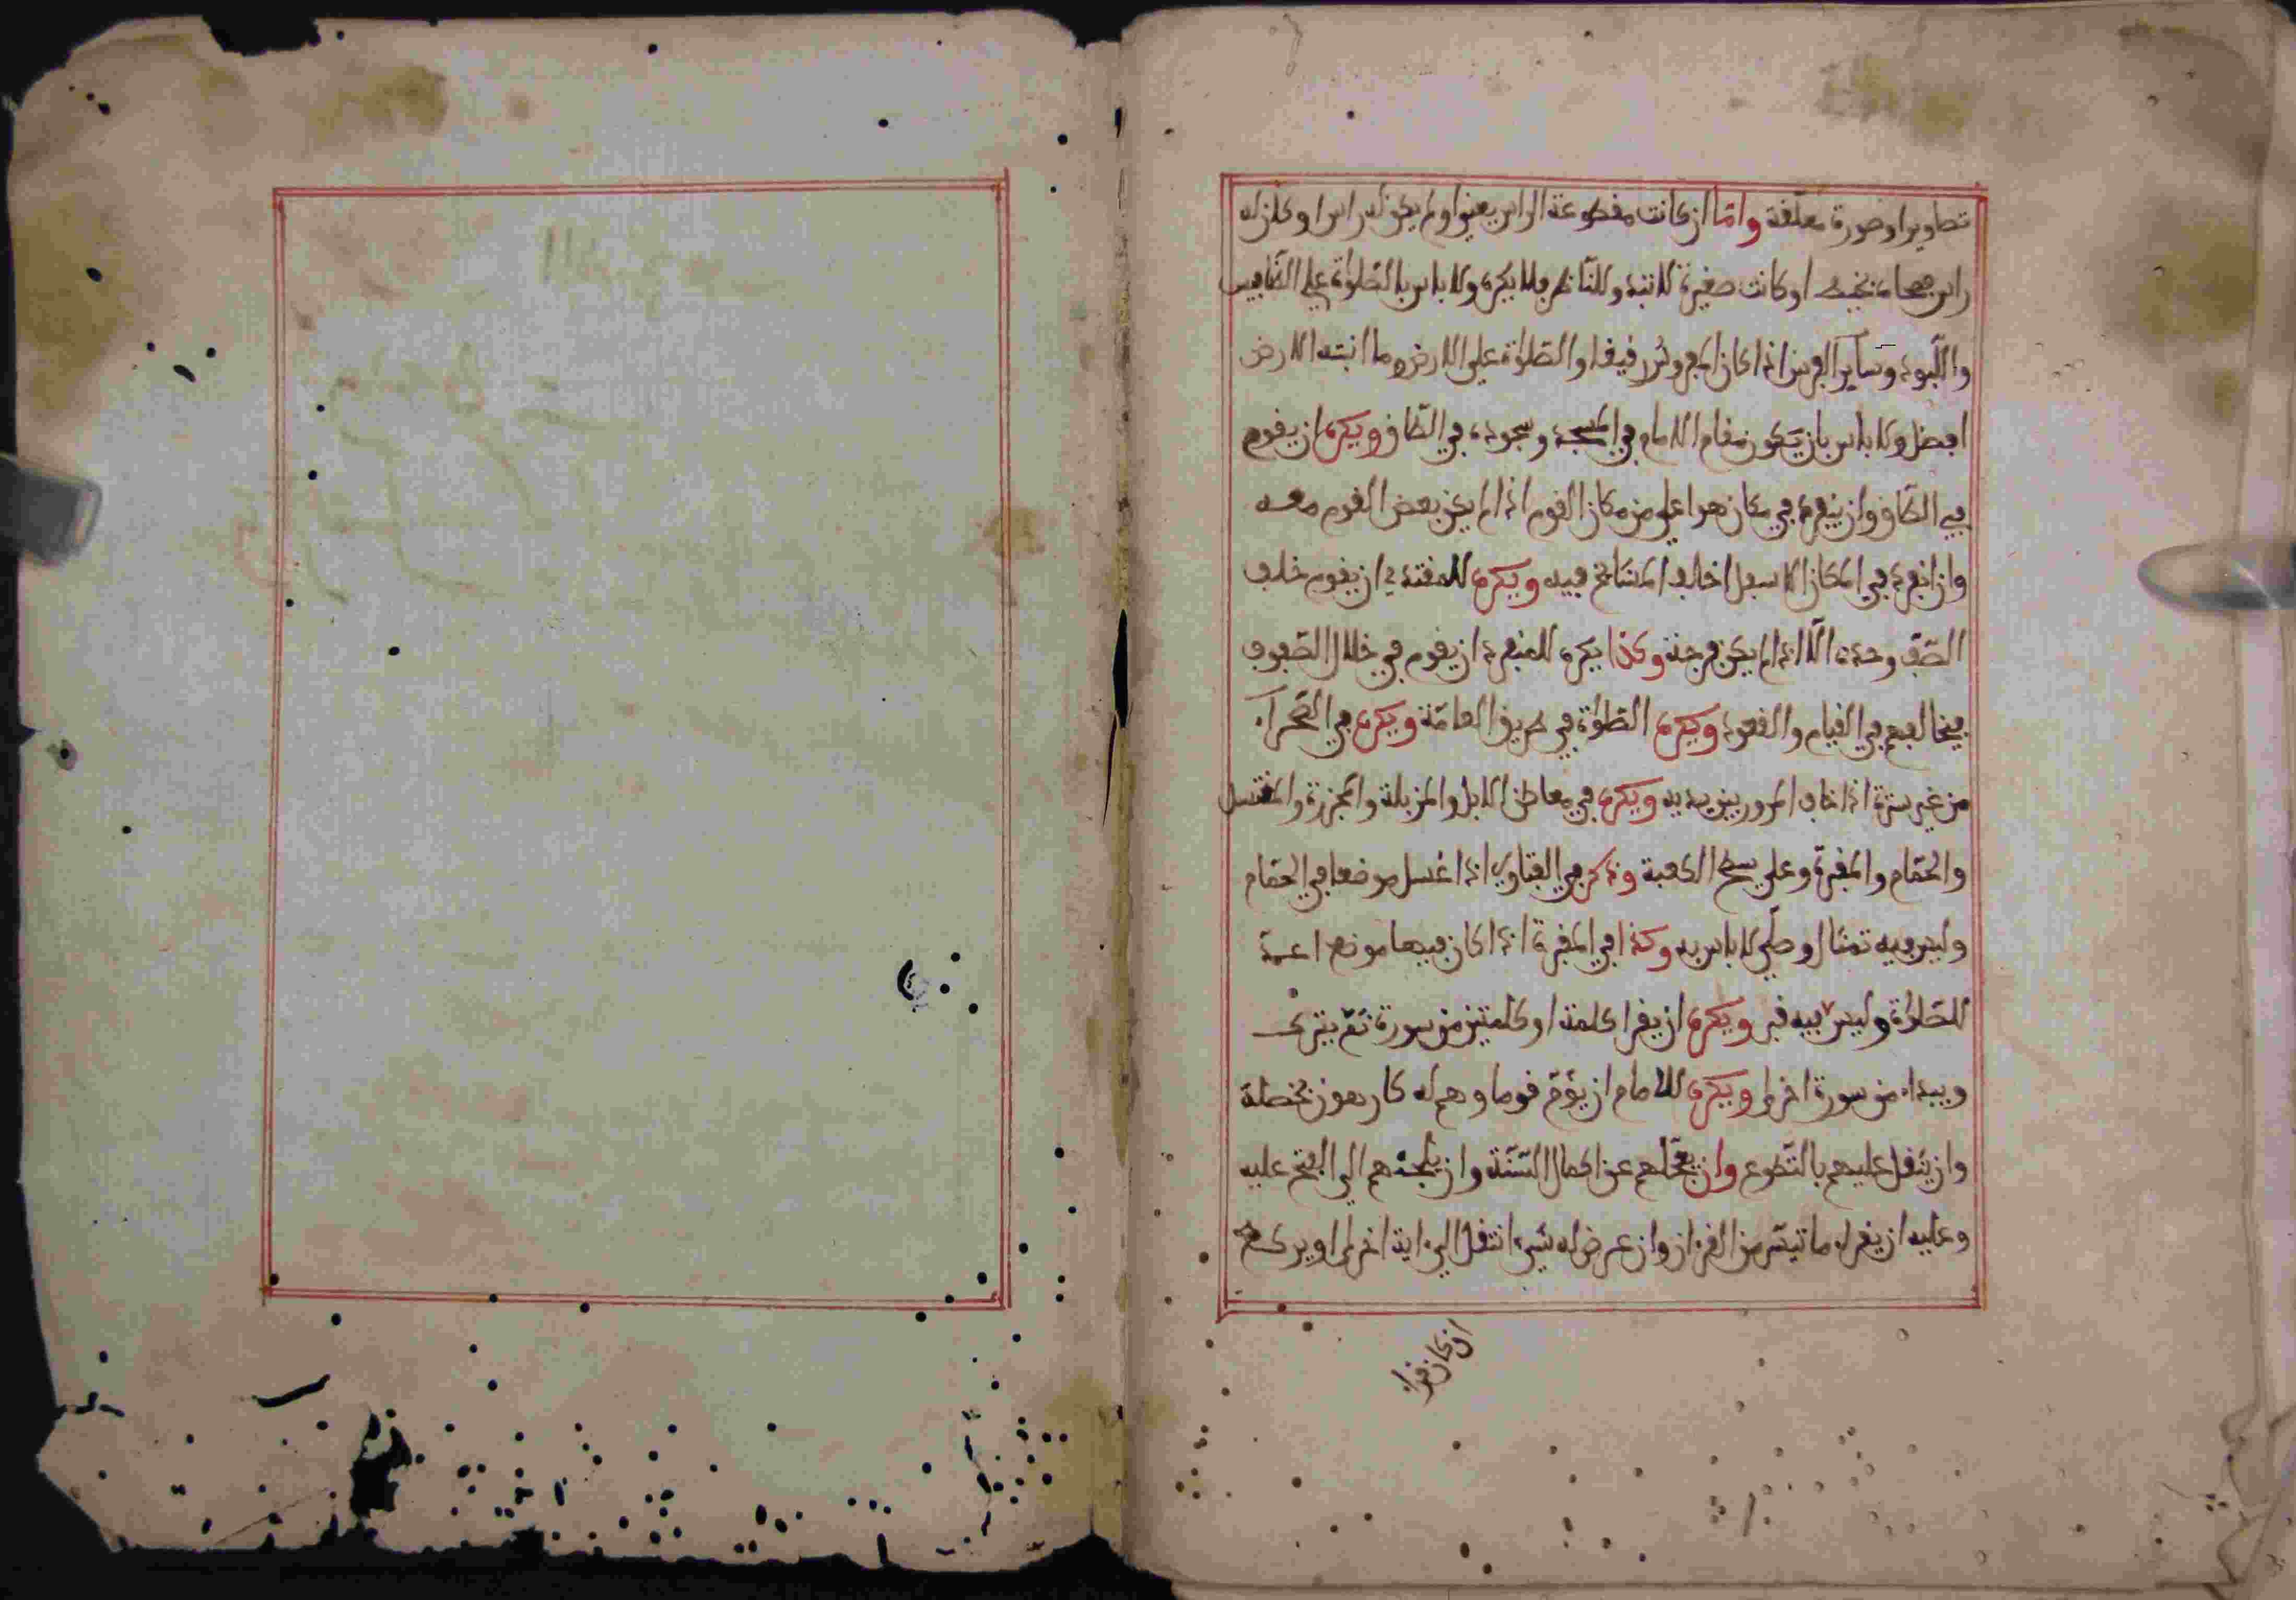 تصاوير او صورة معلقة واما ان كانت مقطوعة الراس يعني او لم يكن له راس او كان له
راس محاه بخيط او كانت صغيرة لا تبدو للناظر فلا يكره ولا باس بالصلوة علي الطنافيس
واللّبود وساير الفرش اذا كان المفروش رقيقا والصلوة علي الارض وما انبته الارض
افضل ولا باس بان يكون مقام الامام في المسجد وسجوده في الطاق ويكره ان يقوم
في الطاق وان ينفرد في مكان هو اعلي من مكان القوم اذا لم يكن بعض القوم معه
وان انفرد في المكان الاسفل اختلف المشائخ فيه ويكره للمقتدي ان يقوم خلف
الصّف وحده الّا اذا لم يكن فرجة وكذا يكره للمنفرد ان يقوم في خلال الصّفوف
فيخالفهم في القيام والقعود ويكره الصّلوة في طريق العامّة ويكره في الصّحراء
من غير سترة اذا خاف المرور بين يديه ويكره في معاطن الابل والمزبلة والمجزرة والمغتسل
والحمّام والمقبرة وعلي سطح الكعبة وذكر في الفتاوي اذا غسل موضعا في الحمّام
وليس فيه تمثال وصلّي لا باس به وكذا في المقبرة اذا كان فيها موضع اعدّ
للصّلوة وليس فيه قبر ويكره ان يقرا كلمة او كلمتين من سورة ثمّ يترك
ويبداء من سورة اخري ويكره للامام ان يؤمّ قوما وهم له كارهون بخصلة
وان يثقل عليهم بالتّطوع وان يعجّلهم عن اكمال السّنّة وان يلجئهم الي الفتح عليه
وعليه ان يقراء ما تيسّر من القران وان عرض له شيء انتقل الي اية اخري او يركع
ان كان قراء